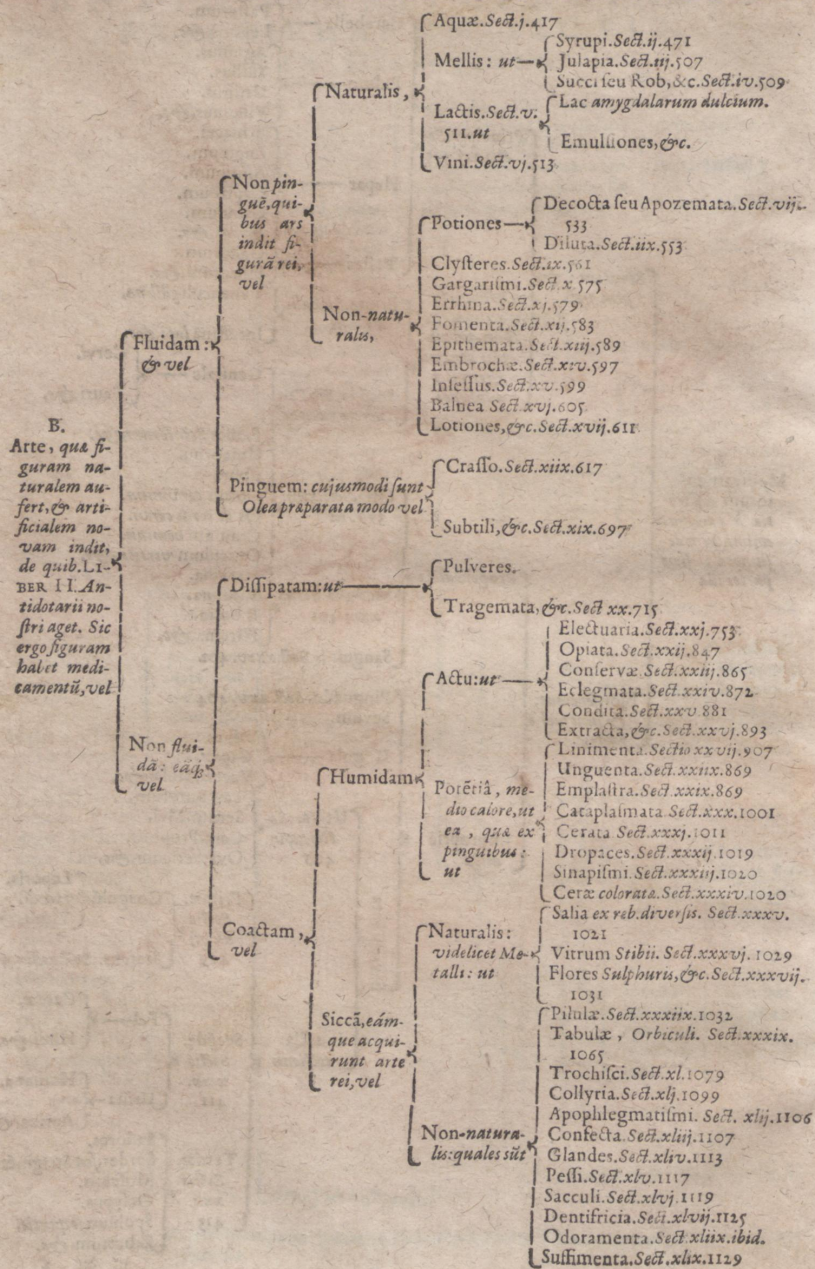 B.
Arte, quæ fi-
guram na-
turalem au-
fert, & arti-
ficialem no-
vam indit,
de quib. LI-
BER II. An-
tidotarii no-
ſtri aget. Sic
ergo figuram
habet medi-
camentũ, vel
Fluidam:
& vel
Non pin-
guē, qui-
bus ars
indit fi-
gurã rei,
vel
Naturalis,
Aquæ. Sect. j. 417
Mellis: ut
Syrupi. Sect. ij. 471
Julapia. Sect. iij. 507
Succi ſeu Rob, &c. Sect. iv. 509
Lactis. Sect. v.
511. ut
Lac amygdalarum dulcium.
Emulſiones, &c.
Vini. Sect. vj. 513
Non-natu-
ralis,
Potiones
Decocta ſeu Apozemata. Sect. vij.
533
Diluta. Sect. iix. 553
Clyſteres. Sect. ix. 561
Gargariſmi. Sect. x. 575
Errhina. Sect. xj. 579
Fomenta. Sect. xij. 583
Epithemata. Sect. xiij. 589
Embrochæ. Sect. xiv. 597
Inſeſſus. Sect. xv. 599
Balnea Sect. xvj. 605
Lotiones, &c. Sect. xvij. 611
Pinguem: cujusmodi ſunt
Olea præparata modo vel
Craſſo. Sect. xiix. 617
Subtili, &c. Sect. xix. 697
Non flui-
dã: eáq;
vel
Diſſipatam: ut
Pulveres.
Tragemata, &c. Sect xx. 715
Coactam,
vel
Humidam
Actu: ut
Electuaria. Sect. xxj. 753
Opiata. Sect. xxij. 847
Conſervæ. Sect. xxiij. 865
Eclegmata. Sect. xxiv. 872
Condita. Sect. xxv 881
Extracta, &c. Sect. xxvj. 893
Potētiâ, me-
dio calore, ut
ea, quæ ex
pinguibus:
ut
Linimenta. Sectio xxvij. 907
Unguenta. Sect. xxiix. 869
Emplaſtra. Sect. xxix. 869
Cataplaſmata Sect. xxx. 1001
Cerata Sect. xxxj. 1011
Dropaces. Sect. xxxij. 1019
Sinapiſmi. Sect. xxxiij. 1020
Ceræ coloratæ. Sect. xxxiv. 1020
Siccã, eám-
que acqui-
runt arte
rei, vel
Naturalis:
videlicet Me-
talli: ut
Salia ex reb. diverſis. Sect. xxxv.
1021
Vitrum Stibii. Sect. xxxvj. 1029
Flores Sulphuris, &c. Sect. xxxvij.
1031
Non-natura-
lis: quales sũt
Pilulæ. Sect. xxxiix. 1032
Tabulæ, Orbiculi. Sect. xxxix.
1065
Trochiſci. Sect. xl. 1079
Collyria. Sect. xlj. 1099
Apophlegmatiſmi. Sect. xlij. 1106
Confecta. Sect. xliij. 1107
Glandes. Sect. xliv. 1113
Peſſi. Sect. xlv. 1117
Sacculi. Sect. xlvj. 1119
Dentifricia. Sect. xlvij. 1125
Odoramenta. Sect. xliix. ibid.
Suffimenta. Sect. xlix. 1129